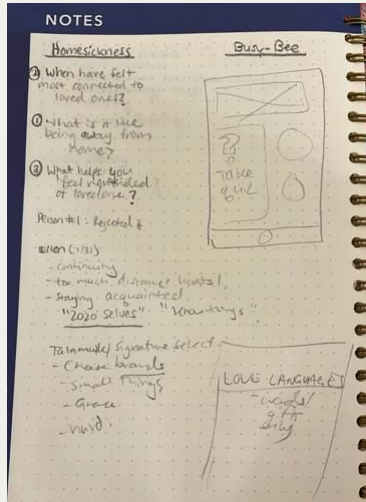 NOTES
Homesickness
② When have felt
most connected to
loved ones?
① What is it like
being away from
home?
③ What helps you
feel reminded
of loved one?
Person #1: Rejected
Ellen (1/31)
- continuity
- too much distance hurts!
- staying acquainted
"2020 selves" "know things"
Signature Select
- Cheese boards
- small things
- Grace
- hard.
Busy-Bee
?
Take
quiz
LOVE LANGUAGES
- words/
gift